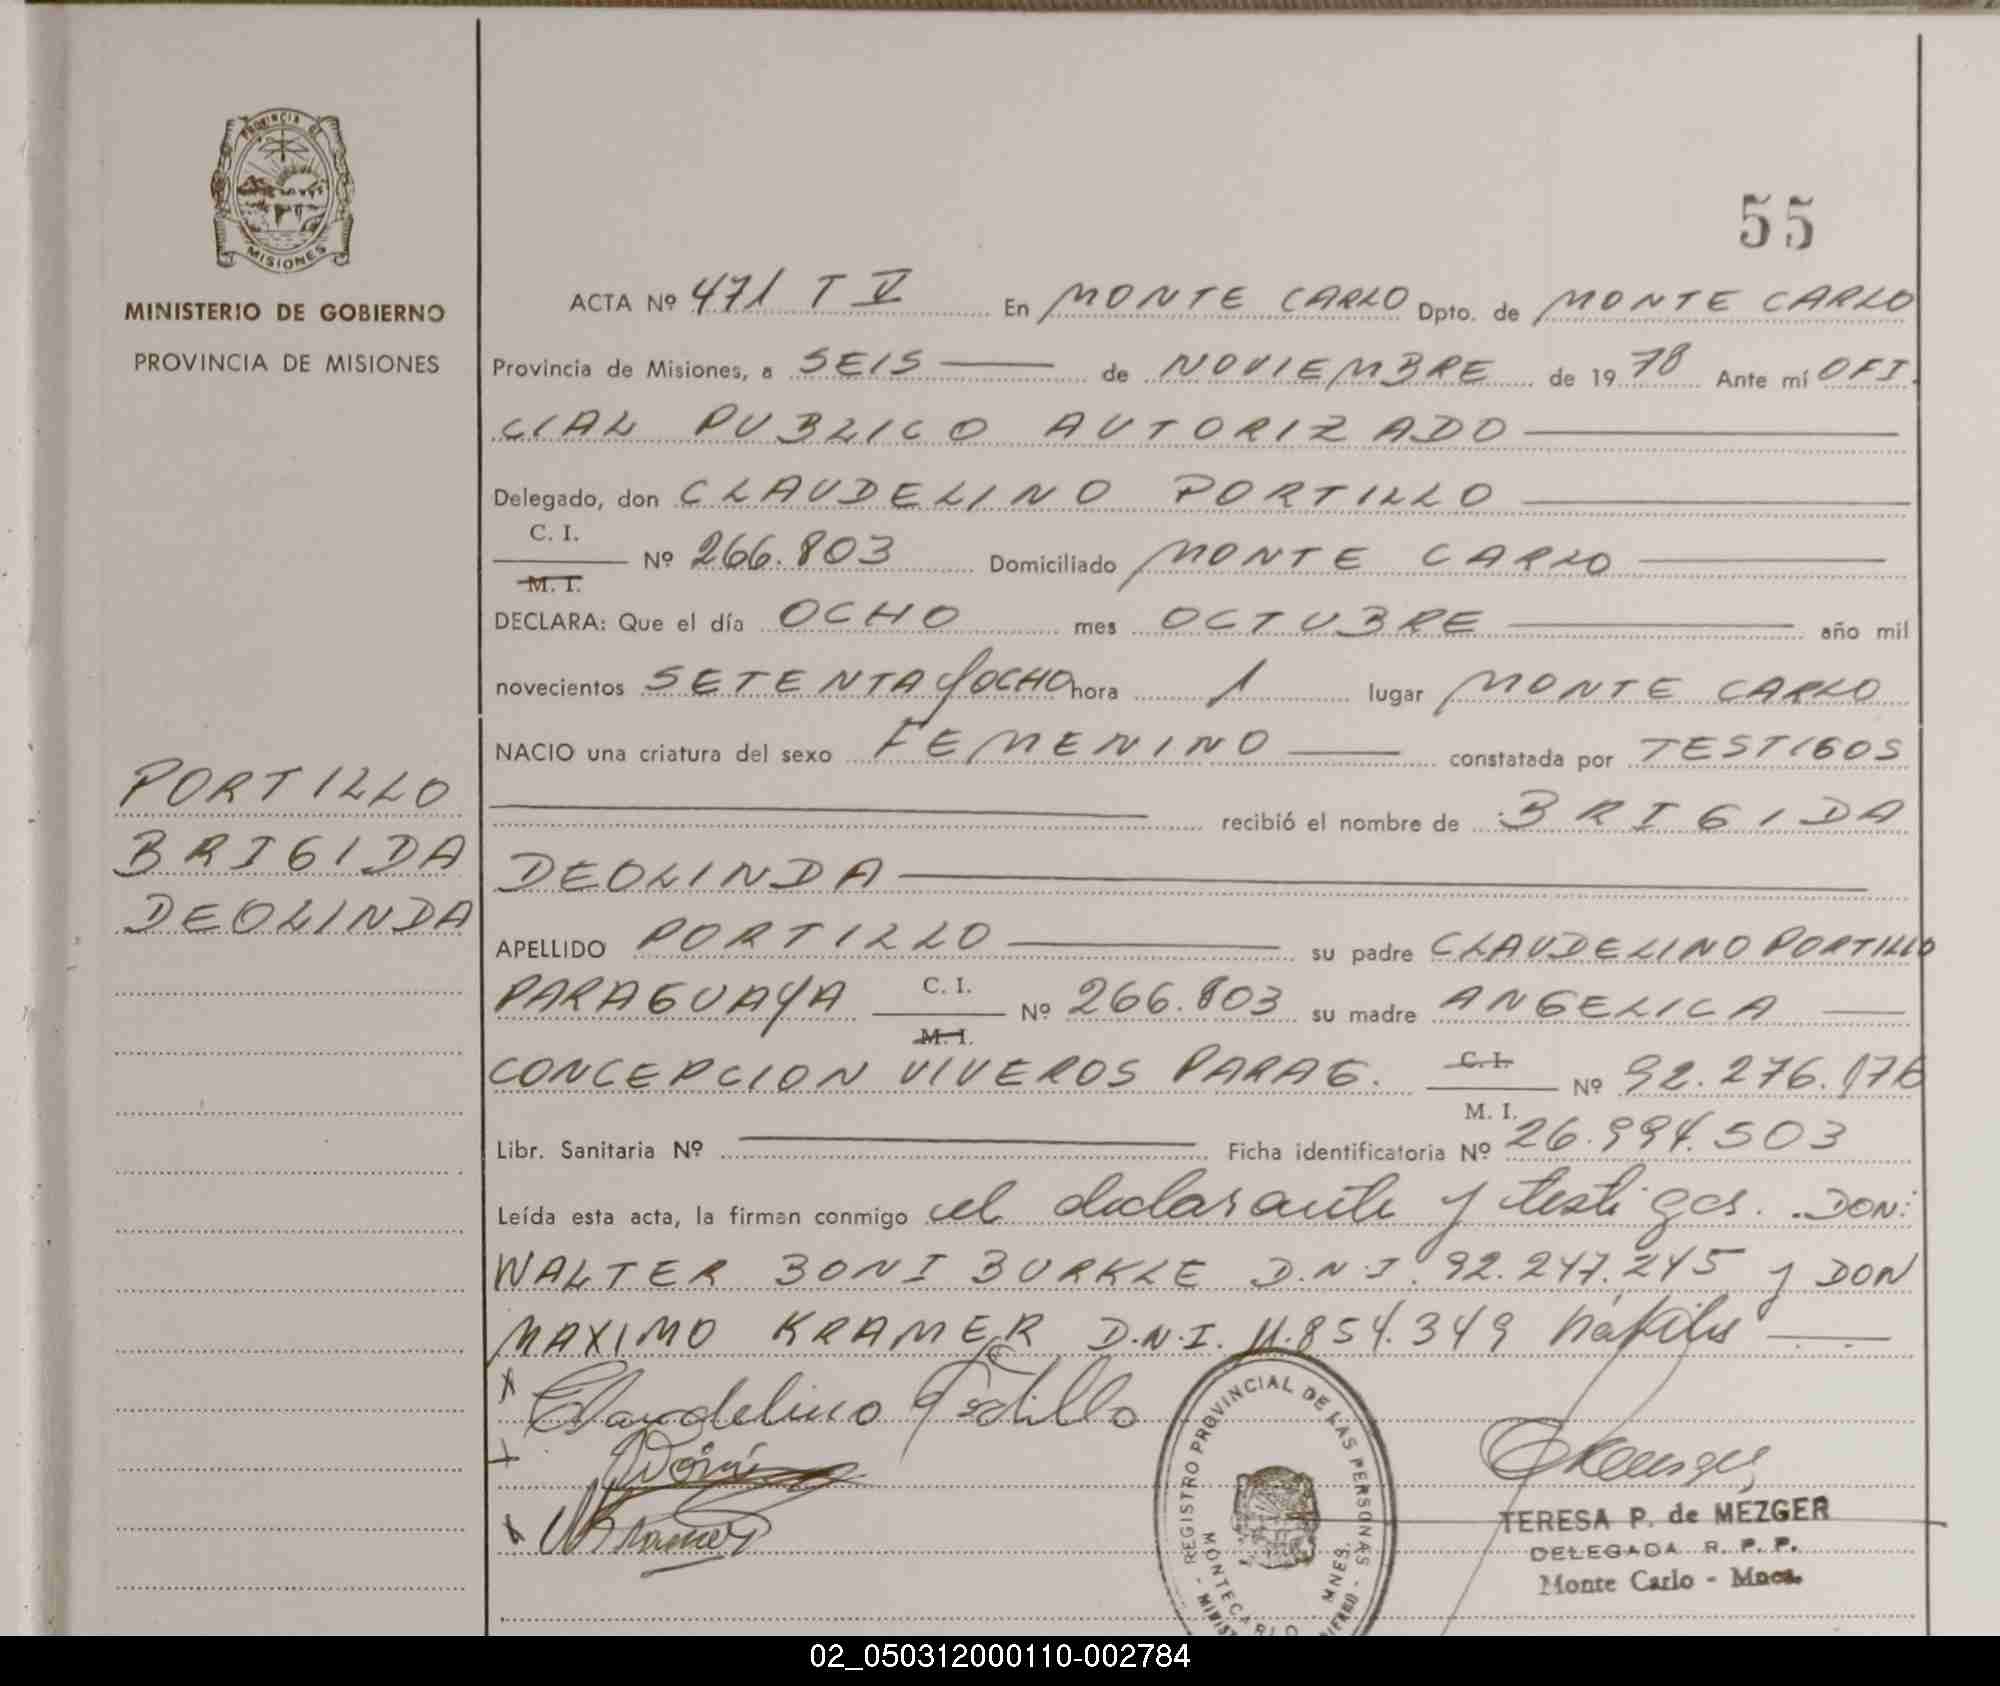 PROVINCIA DE
MISIONES
MINISTERIO DE GOBIERNO
PROVINCIA DE MISIONES
55
ACTA Nº 471 T V En MONTE CARLO Dpto. de MONTE CARLO
Provincia de Misiones, a SEIS de NOVIEMBRE de 1978 Ante mí OFI.
CIAL PUBLICO AUTORIZADO
Delegado, don CLAUDELINO PORTILLO
C. I.
M. I.
Nº 266.803 Domiciliado MONTE CARLO
DECLARA: Que el día OCHO mes OCTUBRE año mil
novecientos SETENTA y OCHO hora 1 lugar MONTE CARLO
NACIO una criatura del sexo FEMENINO constatada por TESTIGOS
recibió el nombre de BRIGIDA
DEOLINDA
PORTILLO
BRIGIDA
DEOLINDA
APELLIDO PORTILLO su padre CLAUDELINO PORTILLO
PARAGUAYA C. I. M. I. Nº 266.803 su madre ANGELICA
CONCEPCION VIVEROS PARAG. C. I. M. I. Nº 92.276.176
Libr. Sanitaria Nº Ficha identificatoria Nº 26.994.503
Leída esta acta, la firman conmigo el declarante y testigos. DON:
WALTER BONI BURKLE D.N.I. 92.247.245 y DON
MAXIMO KRAMER D.N.I. 11.854.349 hábiles
Claudelino Portillo
Kramer
REGISTRO PROVINCIAL DE LAS PERSONAS
MONTECARLO MNES.
TERESA P. de MEZGER
DELEGADA R. P. P.
Monte Carlo - Mnes.
02_050312000110-002784